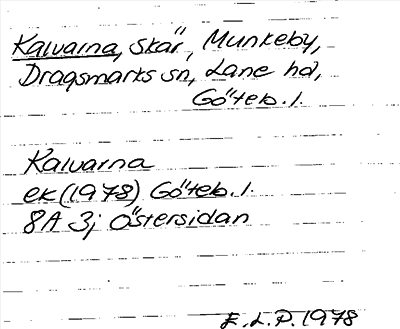 Kalvarna, skär, Munkeby,
Dragsmarks sn, Lane hd,
Göteb. l.
Kalvarna
ek (1978) Göteb. l.
8A 3j Östersidan
E. L. P. 1978